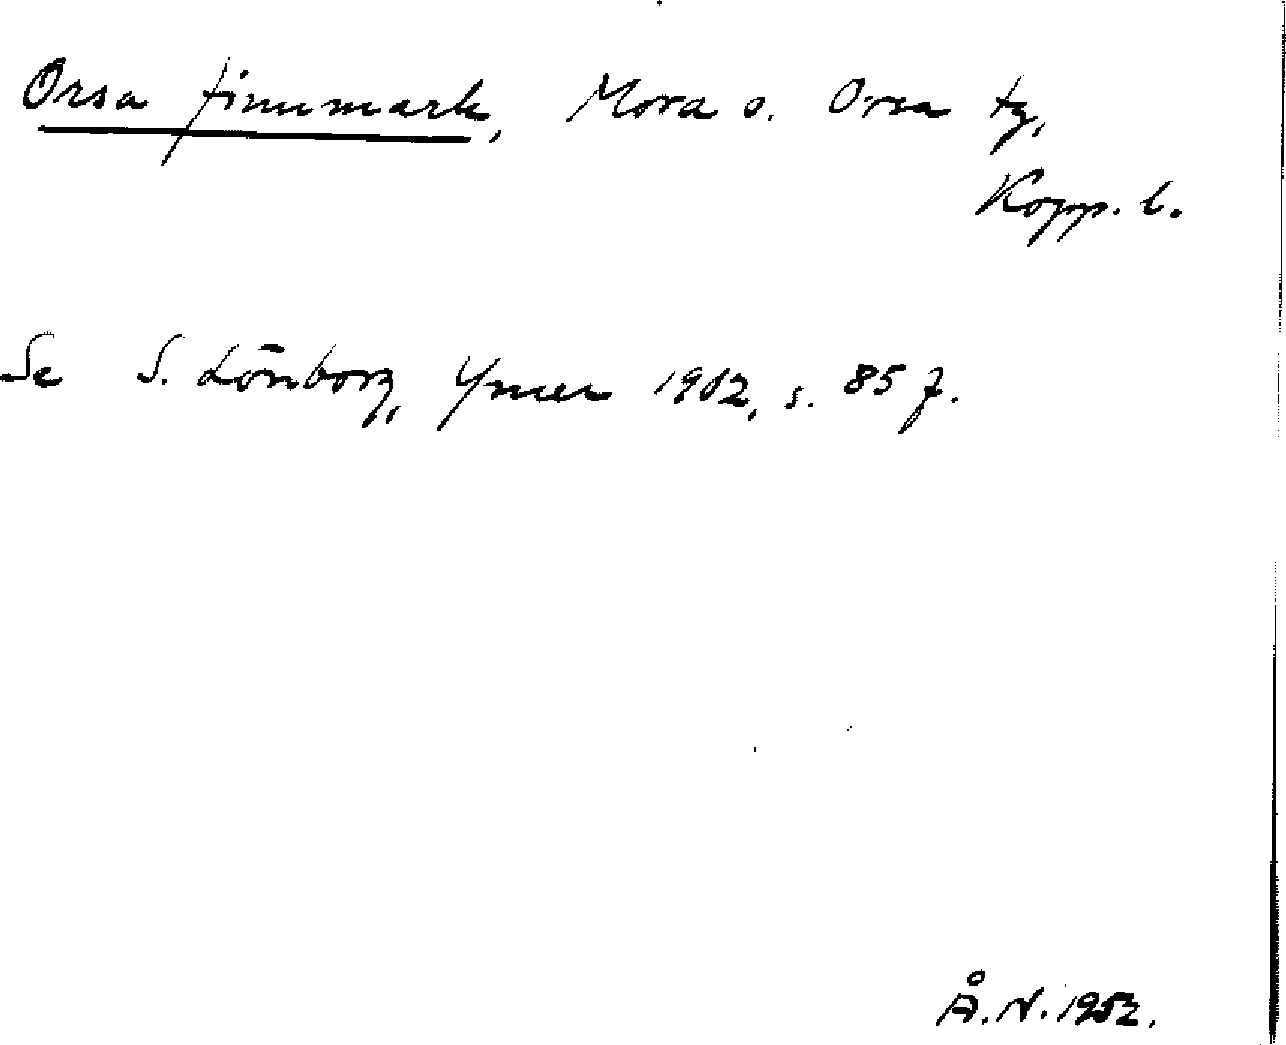 Orsa finnmark, Mora o. Orsa tg,
Kopp. l.
Se S. Lönborg, Ymer 1902, s. 85 f.
Å. N. 1952.